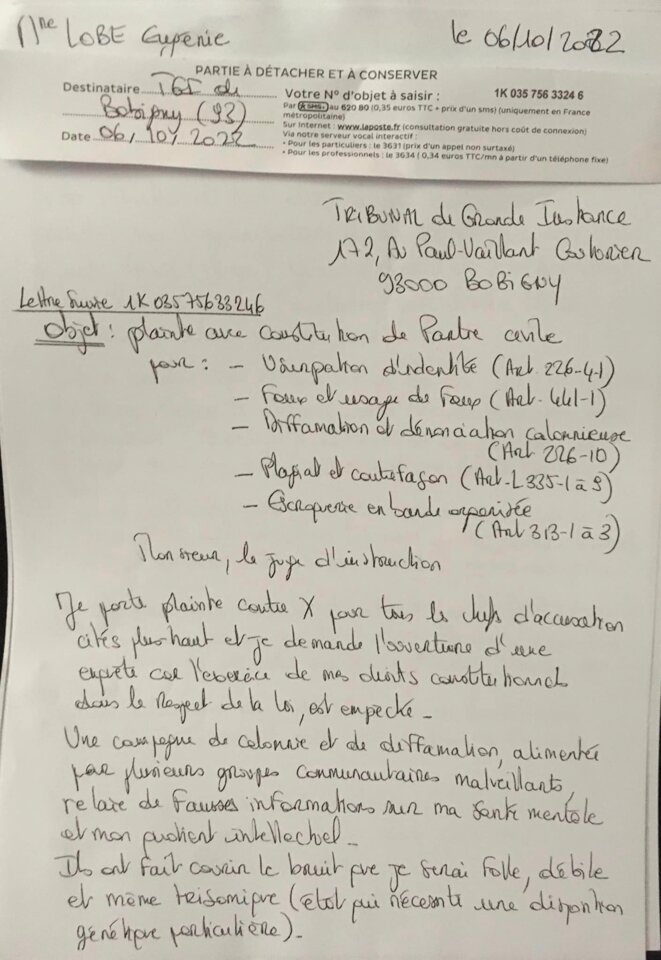 Mme LOBE Eugenie
le 06/10/2022
PARTIE À DÉTACHER ET À CONSERVER
Destinataire TGI de
Bobigny (93)
Date 06/10/2022
Votre N° d'objet à saisir : 1K 035 756 3324 6
Par SMS au 620 80 (0,35 euros TTC + prix d'un sms) (uniquement en France
métropolitaine)
Sur Internet : www.laposte.fr (consultation gratuite hors coût de connexion)
Via notre serveur vocal interactif :
• Pour les particuliers : le 3631 (prix d'un appel non surtaxé)
• Pour les professionnels : le 3634 ( 0,34 euros TTC/mn à partir d'un téléphone fixe)
TRIBUNAL de Grande Instance
172, Av Paul-Vaillant Couturier
93000 BOBIGNY
Lettre Suivie 1K 03575633246
Objet : plainte avec Constitution de Partie civile
pour : - Usurpation d'indentité (Art 226-4-1)
- Faux et usage de Faux (Art. 441-1)
- Diffamation et dénonciation calonnieuse
(Art 226-10)
- Plagiat et contrefaçon (Art-L335-1 à 9)
- Escroquerie en bande organisée
(Art 313-1 à 3)
Monsieur, le juge d'instruction
Je porte plainte contre X pour tous les chefs d'accusation
cités plus haut et je demande l'ouverture d'une
enquête car l'exercice de mes droits constitutionnels
dans le Respect de la loi, est empeché -
Une campagne de calonnie et de diffamation, alimentée
par plusieurs groupes communautaires malveillants,
relaie de Fausses informations sur ma santé mentale
et mon quotient intellectuel -
Ils ont fait courir le bruit que je serai folle, débile
et même trisomique (état qui nécessite une disposition
génétique particulière) -